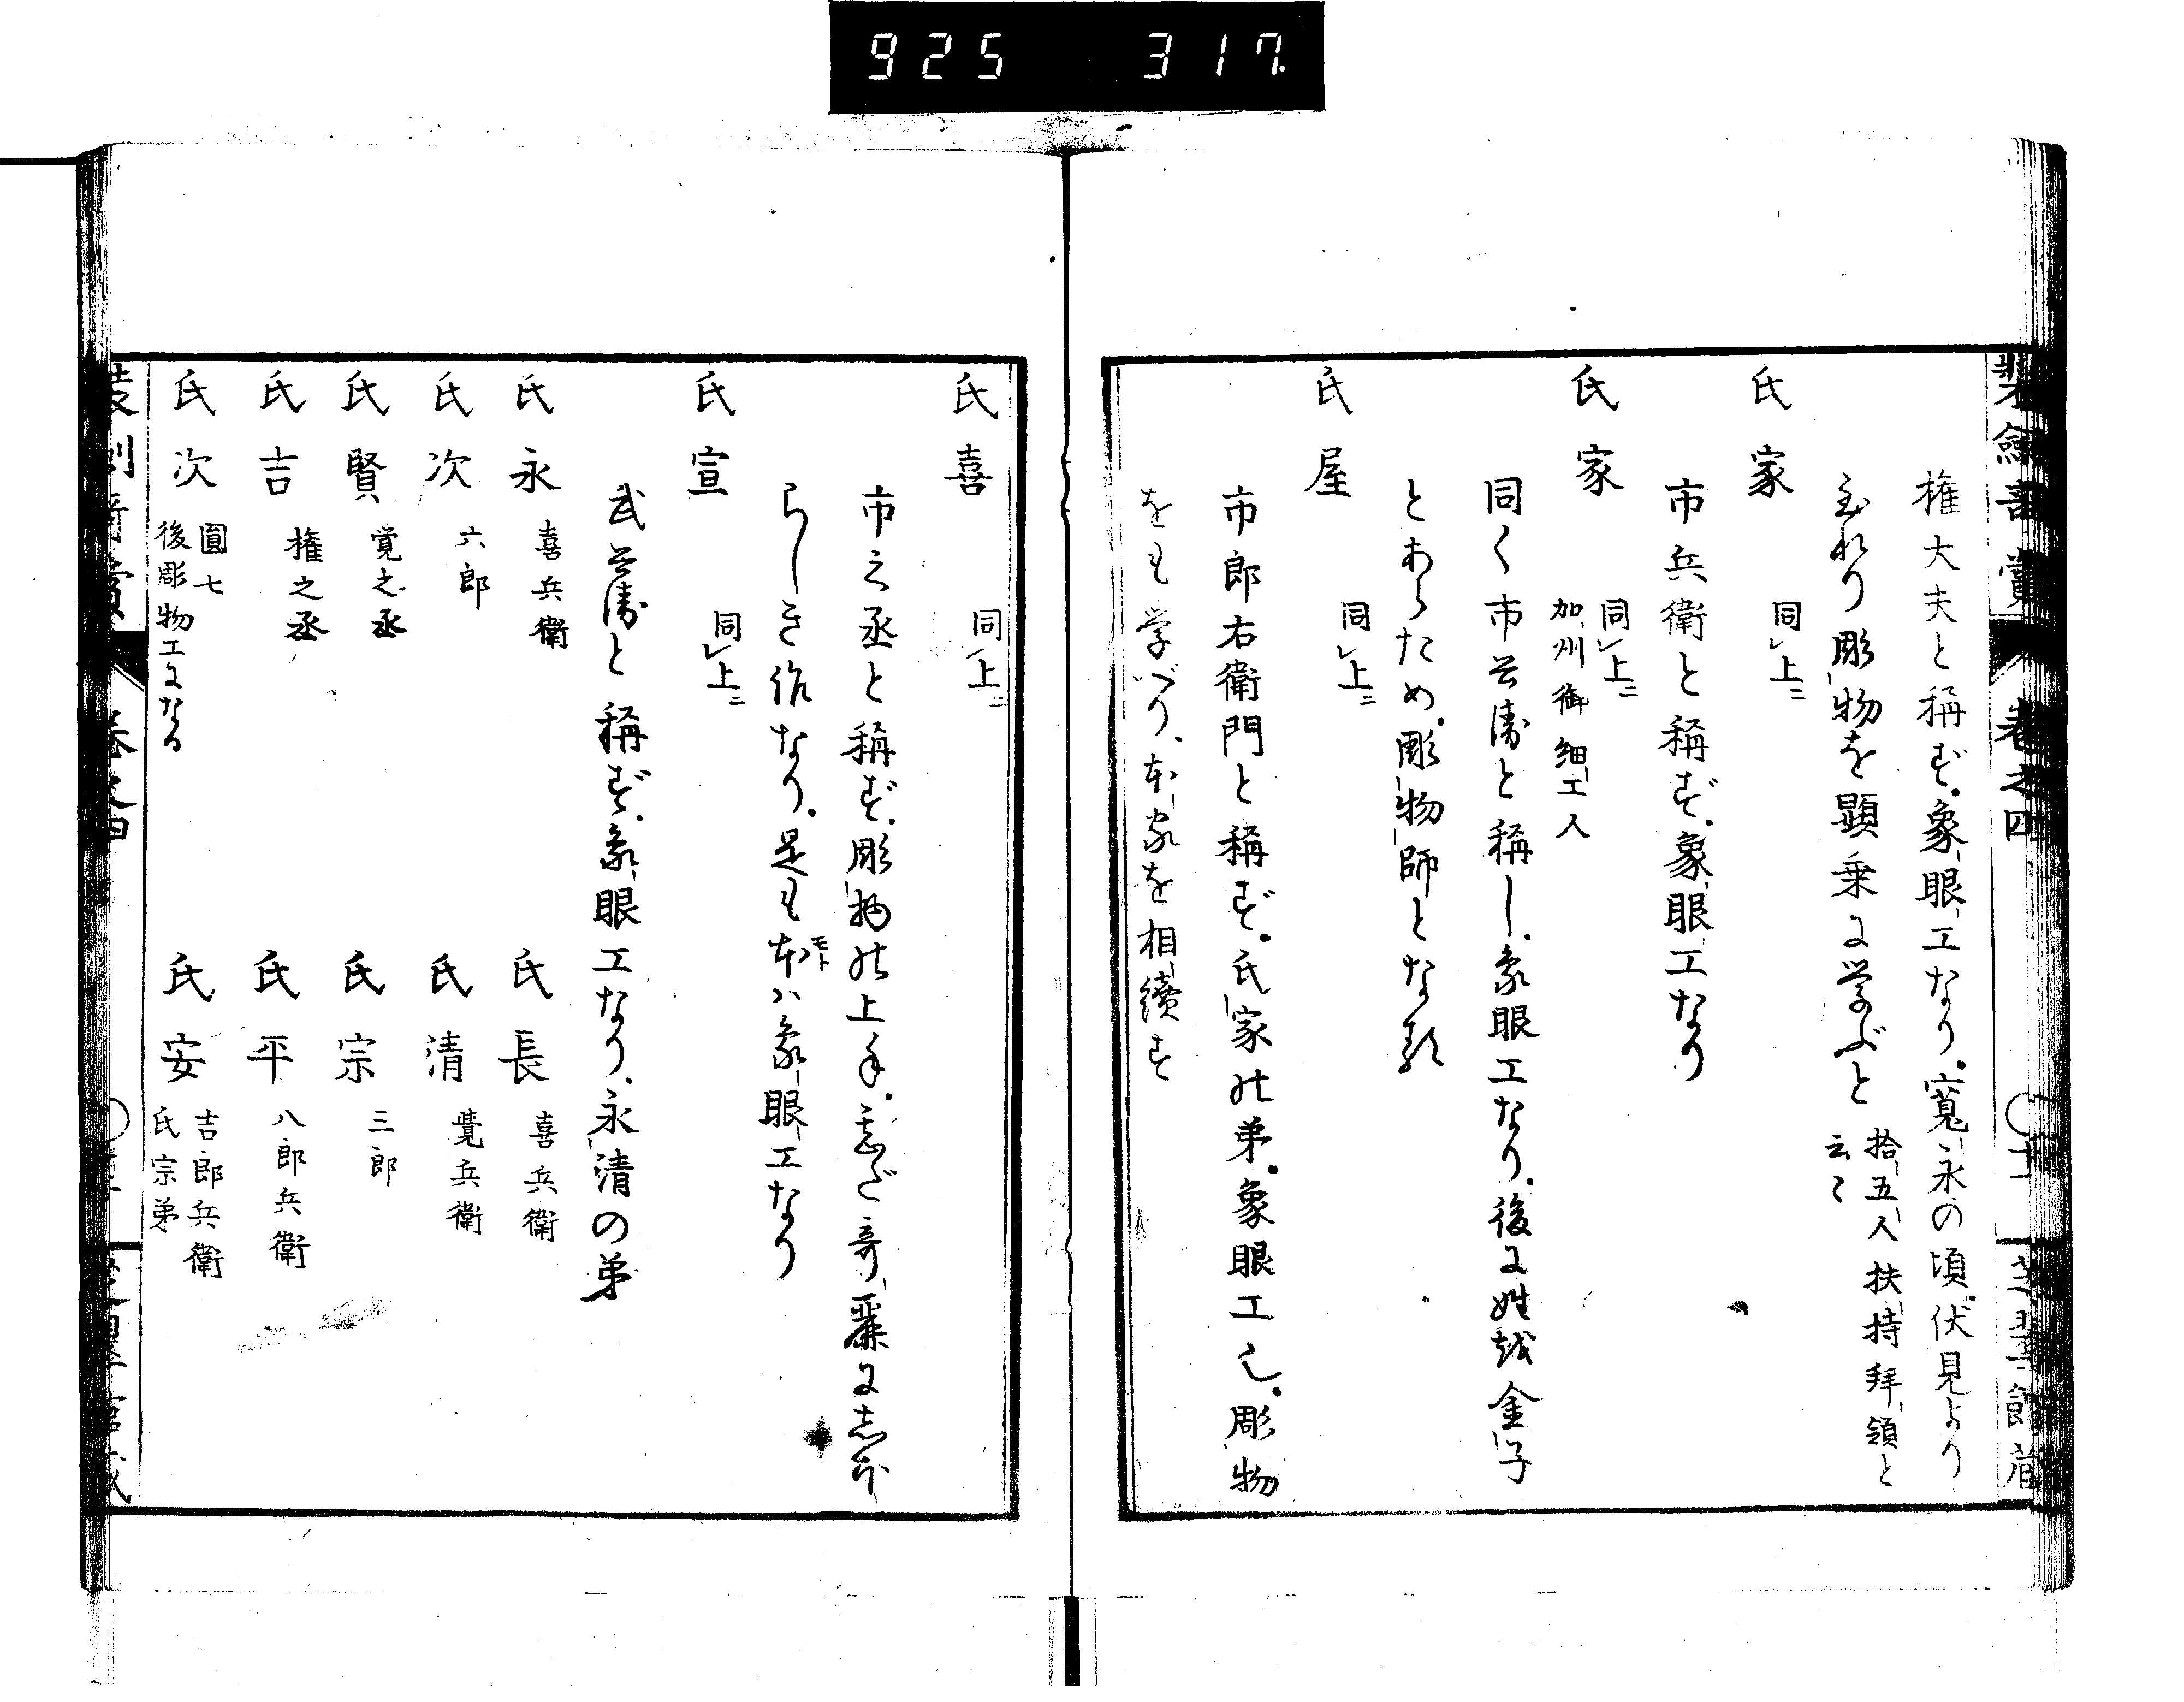 925 317
装劔奇賞 巻之四
権大夫と稱ず。象眼工なり。寛永の頃。伏見より
至れり彫物を顕乗に学ぶと
拾五人扶持拝領と
云々
氏家 同レ上ニ
市兵衛と稱ず。象眼工なり
氏家 同レ上ニ
加州御細工人
同く市兵衛と稱し。象眼工なり。後に姓越金子
とあらため。彫物師となる
氏屋 同レ上ニ
市郎右衛門と稱ず。氏家の弟。象眼工也。彫物
をも学べり。本家を相續す
氏喜 同レ上ニ
市之丞と稱ず。彫物の上手。甚だ奇麗にしほ
らしき作なり。是も本モトハ象眼工なり
氏宣 同レ上ニ
武兵衛と稱ず。象眼工なり。永清の弟
氏永 喜兵衛 氏長 喜兵衛
氏次 六郎 氏清 覺兵衛
氏賢 覚之丞 氏宗 三郎
氏吉 権之丞 氏平 八郎兵衛
氏次 圓七
後彫物工になる
氏安 吉郎兵衛
氏宗弟
巻之四